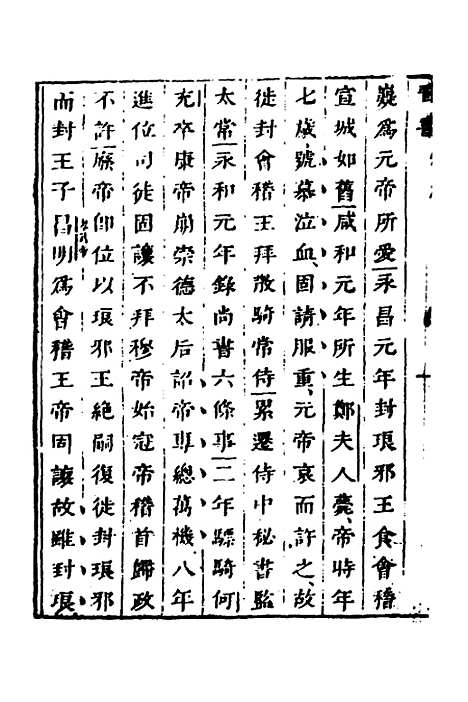 嶷爲元帝所愛永昌元年封琅邪王食會稽
宣城如舊咸和元年所生鄭夫人薨帝時年
七歲號慕泣血固請服重元帝哀而許之故
徙封會稽王拜散騎常侍累遷侍中秘書監
太常永和元年錄尚書六條事二年驃騎何
充卒康帝崩崇德太后詔帝專總萬機八年
進位司徒固讓不拜穆帝始冠帝稽首歸政
不許廢帝卽位以琅邪王絶嗣復徙封琅邪
而封王子昌明爲會稽王帝固讓故雖封琅